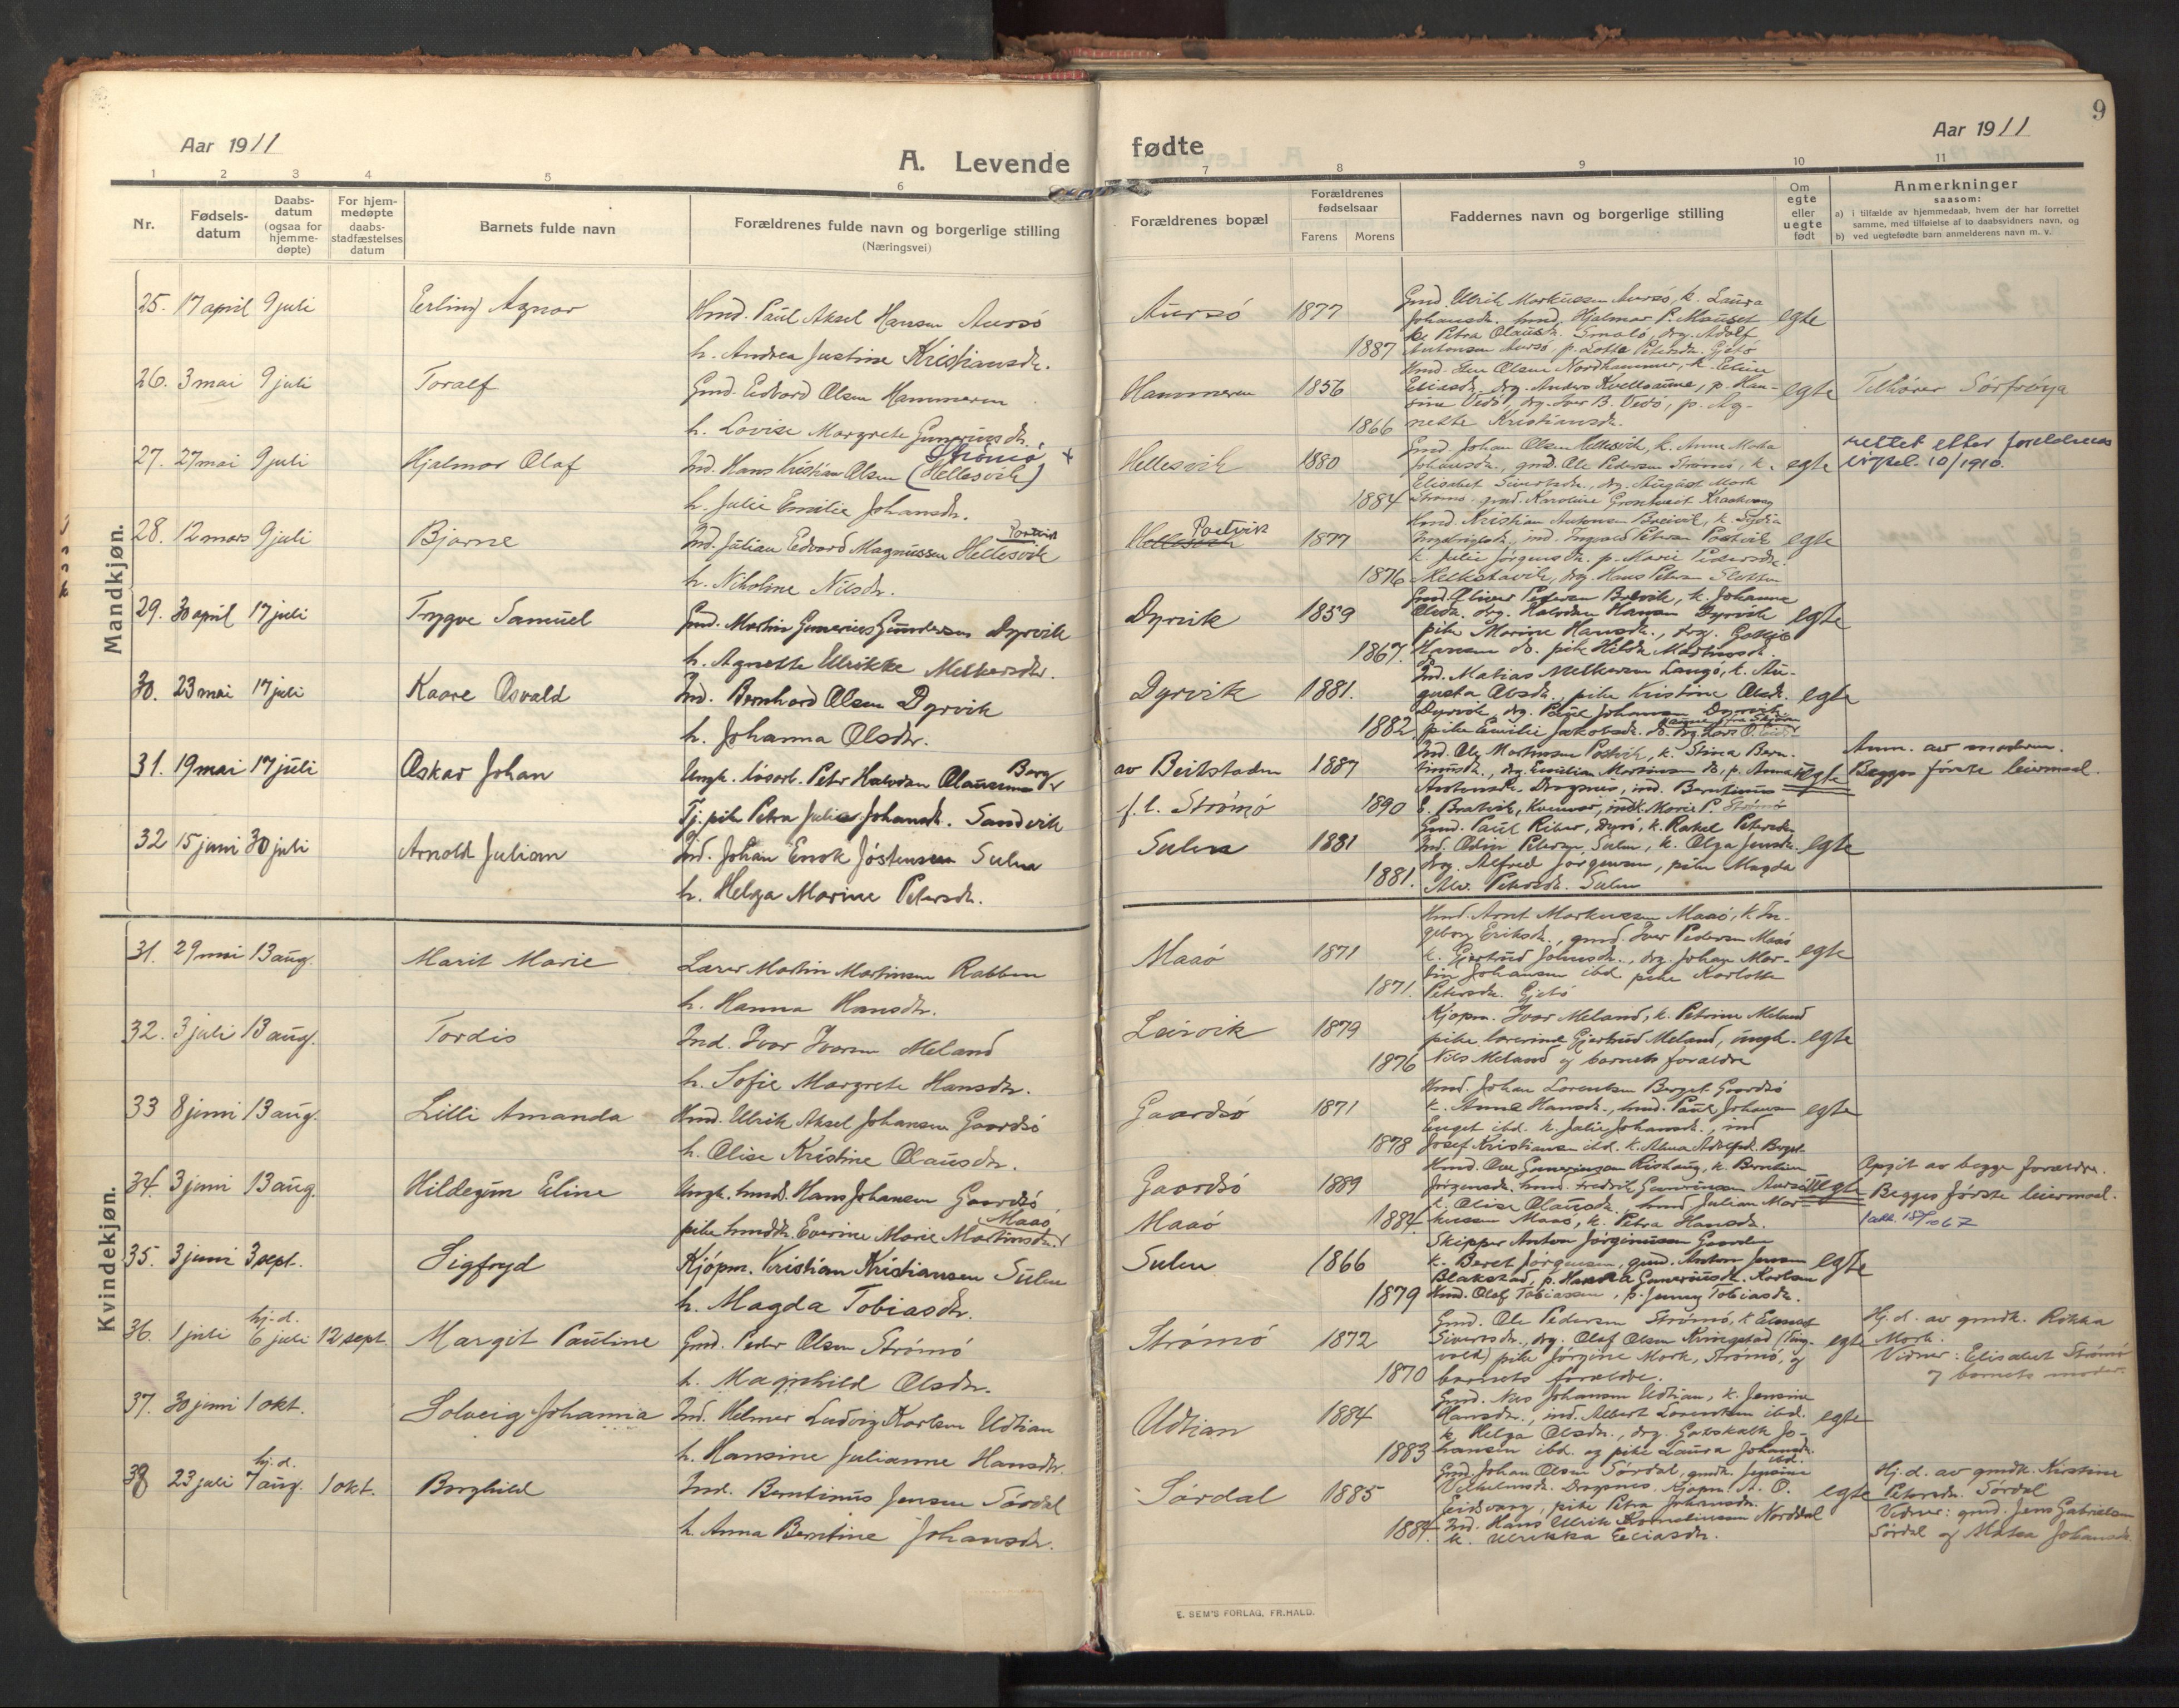 9
Aar 1911
A. Levende
fødte
Aar 1911
1 2 3 4 5 6 7 8 9 10 11
Nr.
Fødsels-
datum
Daabs-
datum
(ogsaa for
hjemme-
døpte)
For hjem-
medøpte
daabs-
stadfæstelses
datum
Barnets fulde navn
Forældrenes fulde navn og borgerlige stilling
(Næringsvei)
Forældrenes bopæl
Forældrenes
fødselsaar
Farens Morens
Faddernes navn og borgerlige stilling
Om
egte
eller
uegte
født
Anmerkninger
saasom:
a) i tilfælde av hjemmedaab, hvem der har forrettet
samme, med tilføielse af to daabsvidners navn, og
b) ved uegtefødte barn anmelderens navn m. v.
Mandkjøn.
25. 17 april 9 juli Erling Agnar
Hmd. Paul Aksel Hansen Aursö
h. Andrea Justine Kristiansdr.
Aursó 1877 1887
Gmd. Ulrik Markussen Aursö, k. Laura
Johansdr. hmd. Hjalmar P. Mauset
k. Petra Olausdr. Smalö, drg. Adolf
Antonsen Aursö, p. Lotte Petersdr. Gjetö
egte
26. 3 mai 9 juli Toralf
Gmd. Edvard Olsen Hammeren
h. Lovise Margrete Gunneriusdr.
Hammeren 1856 1866
Olsen Nordhammer, k. Elin
Eliasdr. drg. Anders Kvellsaune, p. Han-
sine Vedö, drg. Iver B. Vedö, p. Ag-
nette Kristiansdr.
egte
Tilhører Sörfröya
27. 27 mai 9 juli Hjalmar Olaf
Strömö
Ind. Hans Kristian Olsen (Hellesvik) x
h. Julie Emilie Johansdr.
Hellesvik 1880 1884
Gmd. Johan Olsen Hellesvik, k. Anne Marta
Johansdr., gmd. Ole Pedersen Strömö, k.
Elisabet Sivertsdr., drg. August Mork
Strömö. gmd. Karoline Gröntveit Kraakvaag
egte
rettet etter foreldrenes
vigsel. 10/1910.
28. 12 mars 9 juli Bjarne
Postvik
Ind. Julian Edvard Magnussen Hellesvik
h. Nikoline Nilsdr.
Postvik
Hellesvik 1877 1876
Hmd. Kristian Antonsen Breivik, k. Lydia
Ingebrigtsdr., ind. Ingvald Petersen Postvik
k. Julie Jörgensdr. p. Marie Pedersdr.
Melkstavik, drg. Hans Petersen
egte
29. 30 april 17 juli Trygve Samuel
Gmd. Martin Gunnerius Gundersen Dyrvik
h. Agnette Ulrikke Melkersdtr.
Dyrvik 1859 1867.
Gmd. Oliver Pedersen Brevik, k. Johanna
Olsdr. drg. Halvdan Hansen Dyrvik
pike Marine Hansdr., drg.
Hansen do. pike Hilda Martinusdr.
egte
30. 23 mai 17 juli Kaare Osvald
Ind. Bernhard Olsen Dyrvik
h. Johanna Olsdtr.
Dyrvik 1881. 1882
Ind. Matias Melkersen Langö, k. Au-
gusta Olsdr., pike Kristine Olsdr.
Dyrvik, drg. Paul Johansen Dyrvik
pike Emilie Jakobsdr. do.
egte
31. 19 mai 17 juli Oskar Johan
Ungk. lösarb. Peter Halvdan Olaussen Berg
Tj. pike Petra Julie Johansdr. Sandvik
av Beitstaden
f. t. Strömö
1887 1890
Ind. Ole Martinsen Postvik, k. Stina Bern-
tinusdr., drg. Emilian Martinsen do, p. Anna
Antonsdr. Dragsnes, ind. Berntinus
E. Bratvik, Kvenvær, indk. Marie P. Strömö
uegte
Anm. av moderen.
Begges første leiermaal.
32 15 juni 30 juli Arnold Julian
Ind. Johan Enok Jöstensen Sulen
h. Helga Marine Petersdr.
Sulen 1881 1881.
Gmd. Paul Riber, Dyrö, k. Rakel Petersdr.
Ind. Odin Petersen, Sulen, k. Olga Jensdr.
drg. Alfred Jörgensen, pike Magda
Petersdr. Sulen
egte
Kvindekjøn.
31. 29 mai 13 aug. Marit Marie
Lærer Martin Martinsen Rabben
h. Hanna Hansdr.
Maaö 1871 1871.
Hmd. Arnt Markussen Maaö, k. In-
geborg Eriksdr., gmd. Iver Pedersen Maaö
k. Gjertrud Johnsdr., drg. Johan Mar-
tin Johansen ibd pike Karlotte
Petersdr. Gjetö
egte
32. 3 juli 13 aug. Tordis
Ind. Ivar Ivarsen Meland
h. Sofie Margrete Hansdtr.
Leirvik 1879 1876
Kjöpm. Ivar Meland, k. Petrine Meland
pike lærerinde Gjertrud Meland, ungk.
Nils Meland og barnets forældre
egte
33 8 juni 13 aug. Lilli Amanda
Hmd. Ulrik Aksel Johansen Gaardsö
h. Olise Kristine Olausdtr.
Gaardsö 1871 1878
Hmd. Johan Lorentsen Berget Gaardsö
k. Anna Hansdr., hmd. Paul Johansen
Enget ibd. k. Julie Johansdr., ind
Josef Kristiansen ibd. k. Alma Adolfsdr. Berget
egte
34. 3 juni 13 aug. Hildegun Eline
Ungk. hmds. Hans Johansen Gaardsö
pike hmdtr. Everine Marie Martinsdtr. Maaö
Gaardsö
Maaö
1889 1884
Hmd. Ove Gunneriussen Rishaug, k. Berntine
Jörgensdr. hmd. Fredrik Gunneriussen Aursö
k. Olise Olausdr. hmd Julian Mar-
kussen Maaö, k. Petra Hansdr.
uegte
Opgit av begge forældre.
Begges første leiermaal.
35. 3 juni 3 sept. Sigfryd
Kjöpm. Kristian Kristiansen Sulen
h. Magda Tobiasdtr.
Sulen 1866 1879
Skipper Anton Jörginussen Gaarden
k. Beret Jörgensen, gmd. Anton Jensen
Blakstad, p. Hanna Gunneriusdr. Karlsen
Hmd. Olaf Tobiassen, p. Jenny Tobiasdr.
egte
36. 1 juli hj. d. 6 juli 12 sept. Margit Pauline
Gmd. Peder Olsen Strömö
h. Magnhild Olsdtr.
Strömö 1872 1870
Gmd. Ole Pedersen Strömö, k Elisabet
Sivertsdr., drg. Olaf Olsen Kringstad (Ting-
vold) pike Jörgine Mork, Strömö, og
barnets forældre.
egte
Hj. d. av gmdk. Rokka
Mork.
Vidner: Elisabet Strömö
og barnets moder
37. 30 juni 1 okt. Solveig Johanna
Ind. Helmer Ludvig Karlsen Udtian
h. Hansine Julianne Hansdtr.
Udtian 1884 1883
Gmd. Johansen Udtian, k. Jensine
Hansdr., ind. Albert Lorentsen ibd.
k. Helga Olsdr., drg. Gotskalk Jo-
hansen ibd. og pike Laura Johansdr.
ibd.
egte
38 23 juli hj. d. 7 aug. 1 okt. Borghild
Ind. Berntinus Jensen Sördal
h. Anna Berntine Johansdr.
Sördal 1885 1884
Gmd. Johan Olsen Sördal, gmdk. Jensine
Vilhelmsdr. Dragsnes, Kjöpm. A. O.
Eidsvaag, pike Petra Johansdr.
Ind. Hans Ulrik Korneliussen Norddal
k. Ulrikka Eliasdr.
egte
Hj. d. av gmdk. Kirstine
Petersdr. Sördal
Vidner: gmd. Jens Gabrielsen
Sördal og Matea Johansdr.
E. SEM'S FORLAG, FR.HALD.